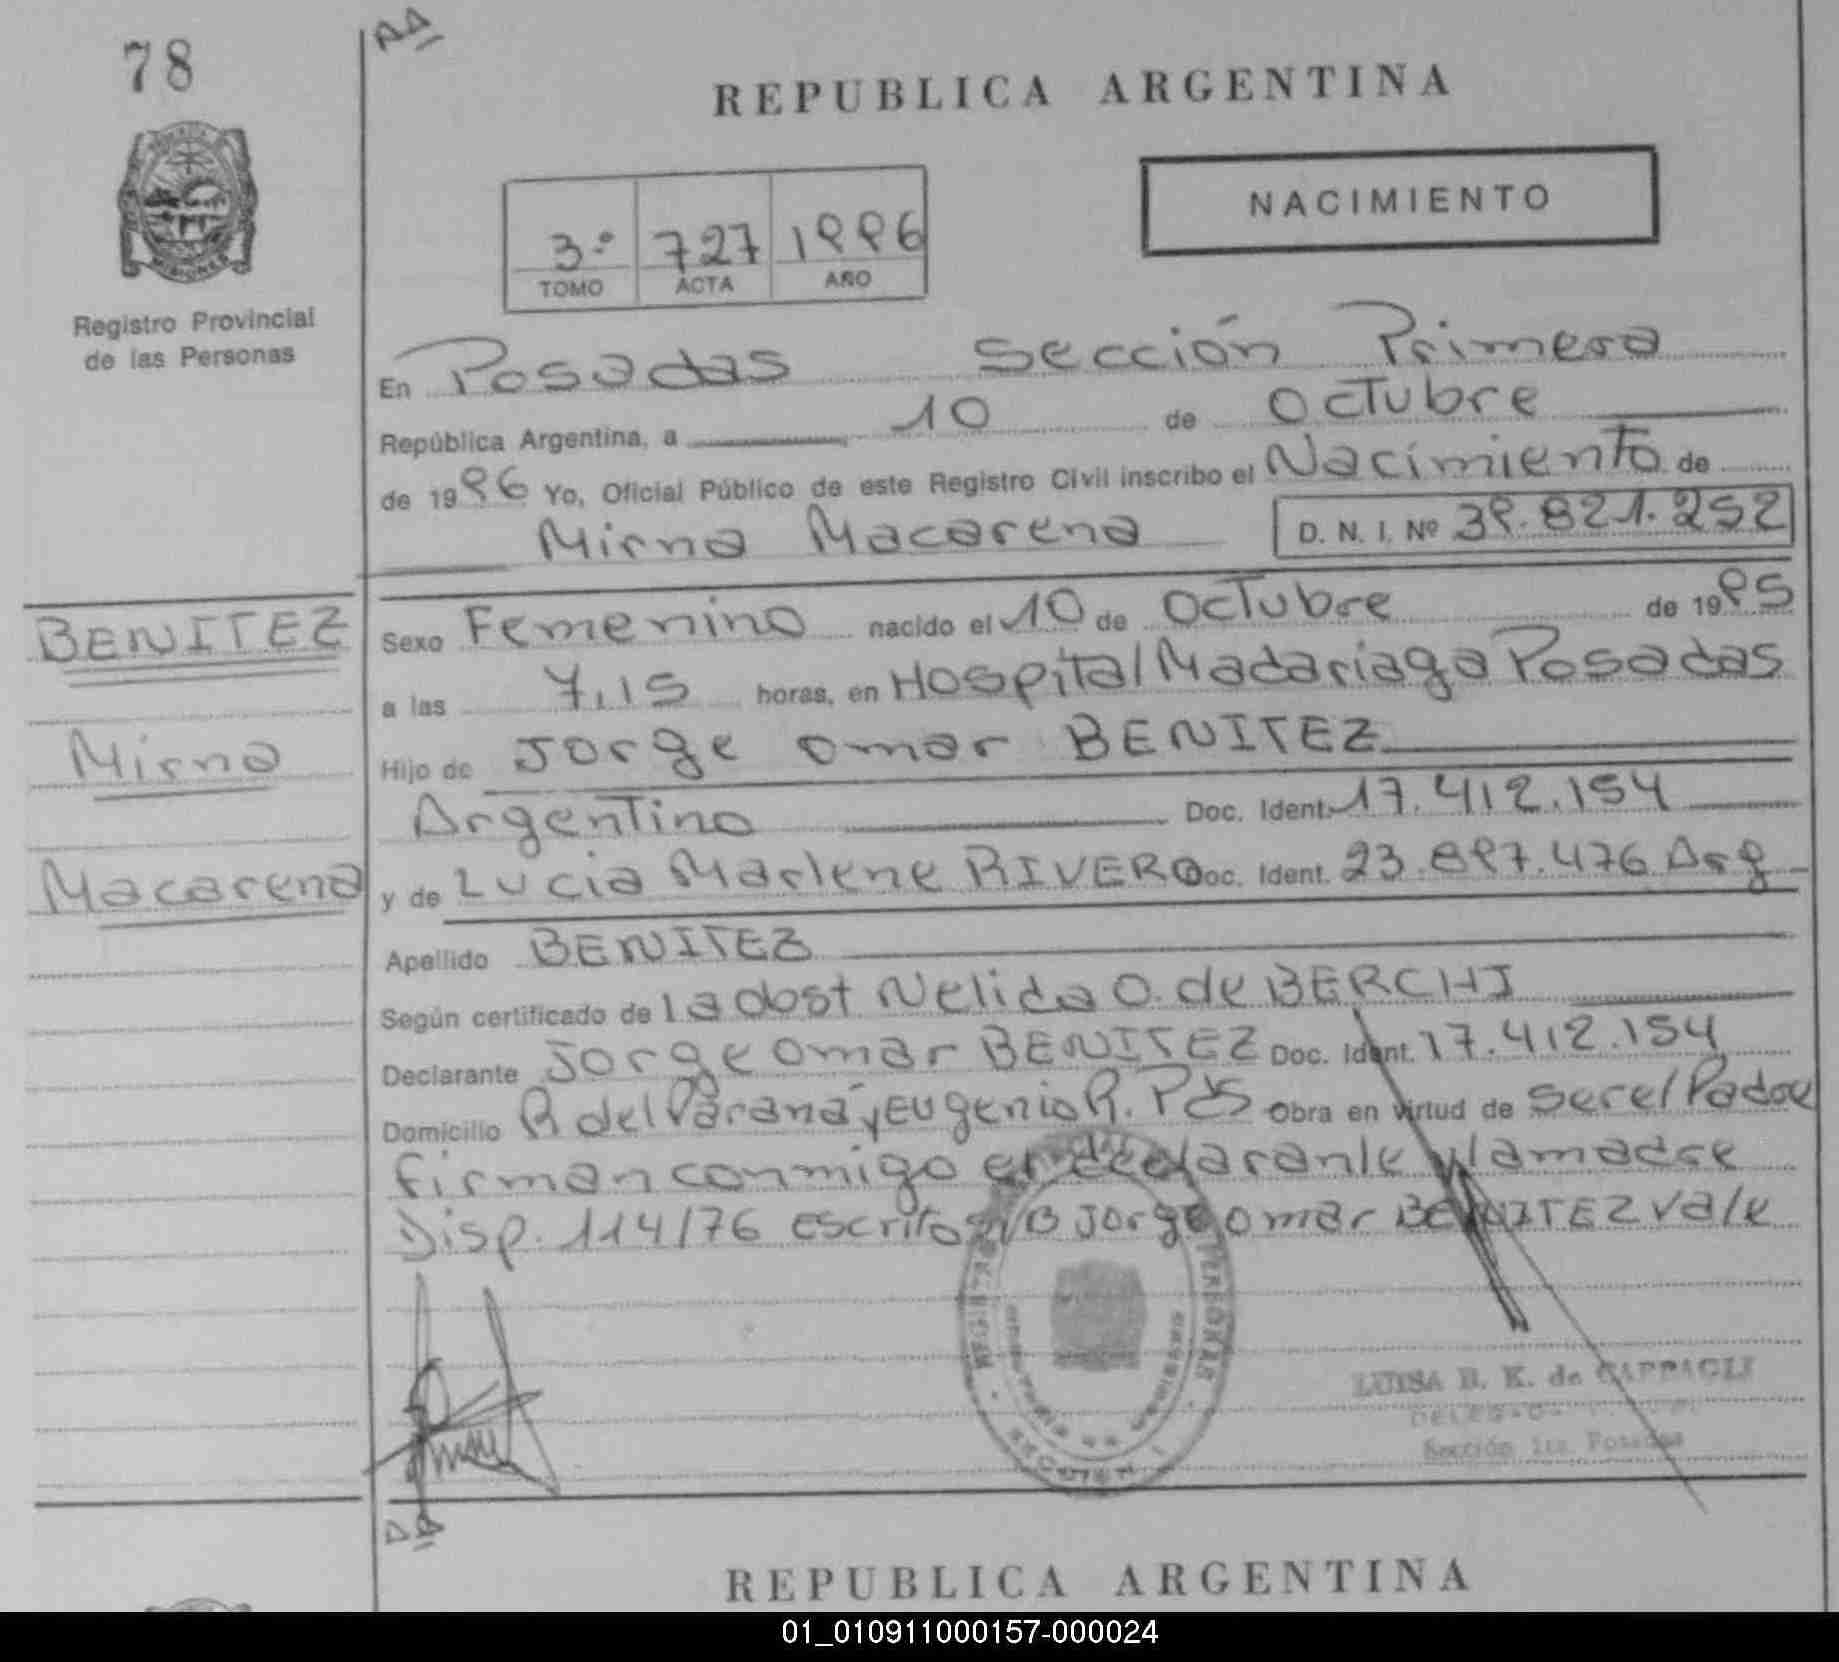 78
AA
REPUBLICA ARGENTINA
MISIONES
Registro Provincial
de las Personas
3º 727 1996
TOMO ACTA AÑO
NACIMIENTO
En Posadas Sección Primera
República Argentina, a 10 de Octubre
de 1996 Yo, Oficial Público de este Registro Civil inscribo el Nacimiento de
Mirna Macarena D. N. I. Nº 39.821.252
BENITEZ
Mirna
Macarena
Sexo Femenino nacido el 10 de Octubre de 1995
a las 7,15 horas, en Hospital Madariaga Posadas
Hijo de Jorge Omar BENITEZ
Argentino Doc. Ident. 17.412.154
y de Lucia Marlene RIVERO Doc. Ident. 23.897.476 Arg
Apellido BENITEZ
Según certificado de la obst Nelida O. de BERCHI
Declarante Jorge Omar BENITEZ Doc. Ident. 17.412.154
Domicilio R del Paraná y Eugenio R. Pds Obra en virtud de ser el Padre
firman conmigo el declarante y la madre
Disp. 114/76 escrito s/B Jorge Omar BENITEZ Vale
LUISA B. K. de CAPPAGLI
Sección 1ra. Posadas
AA
REPUBLICA ARGENTINA
01_010911000157-000024